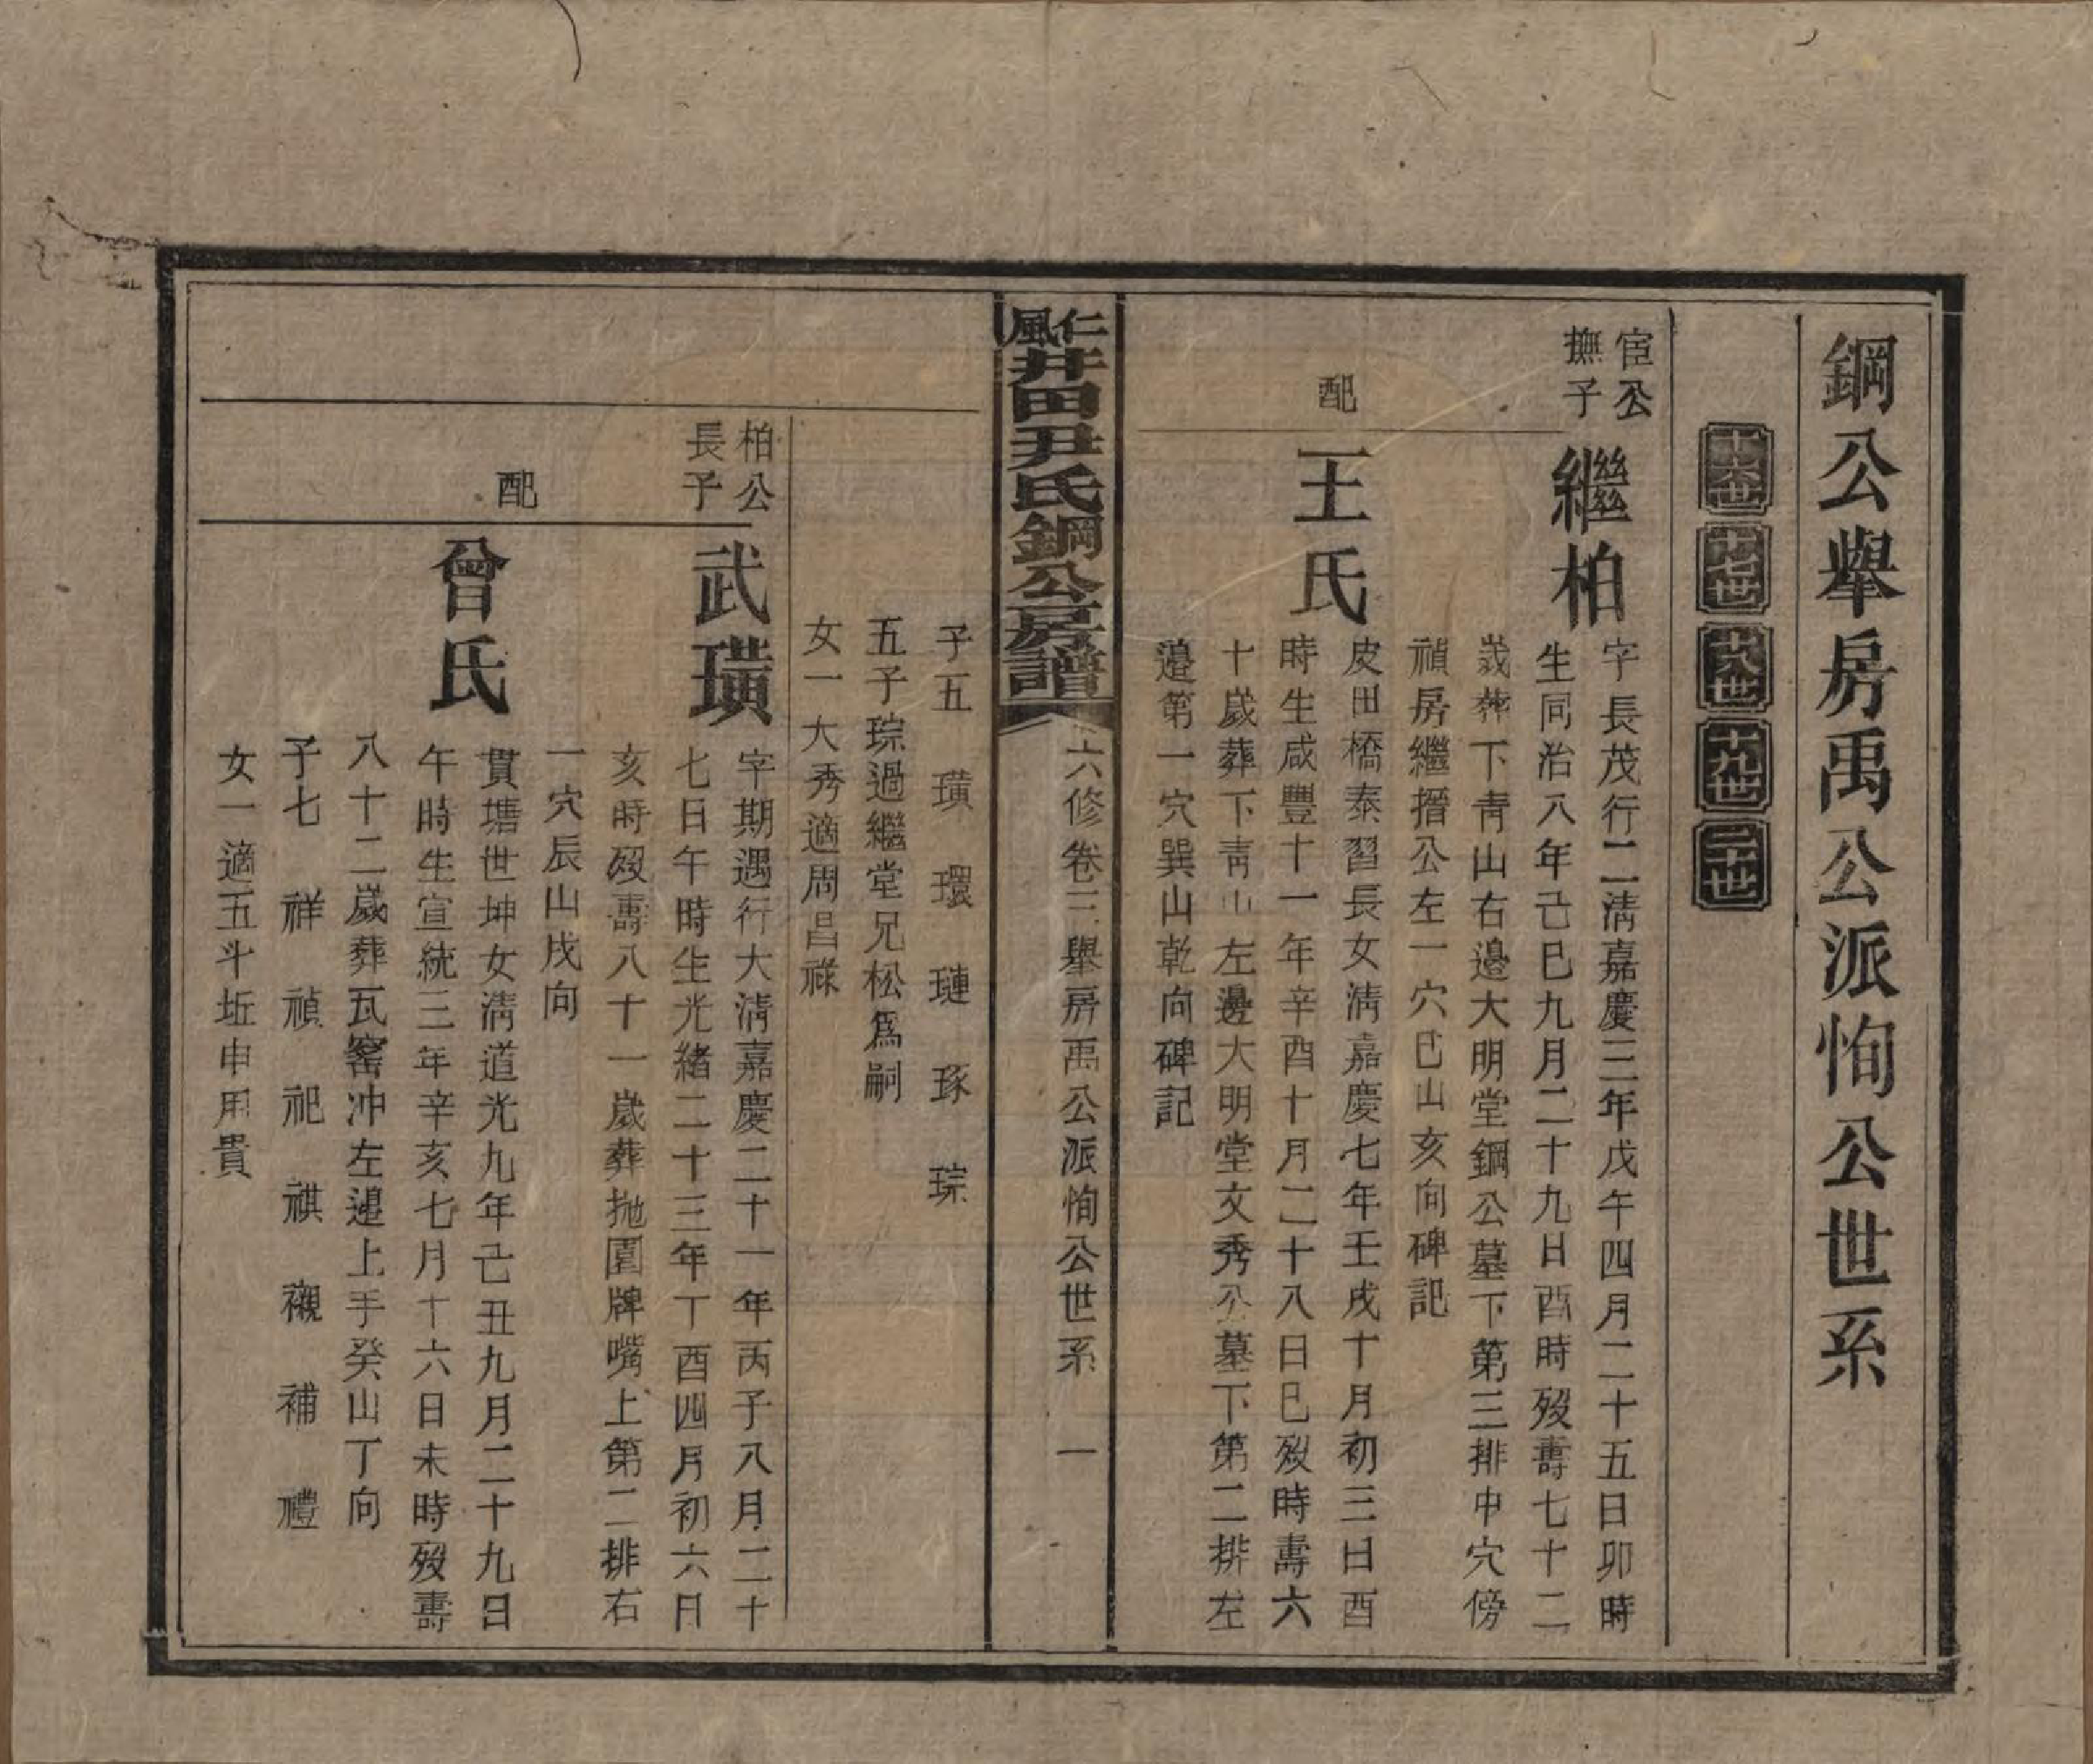 鋼公舉房禹公派恂公世系
十六世
十七世
十八世
十九世
二十世
宦公
撫子
繼柏
字長茂行二淸嘉慶三年戊午四月二十五日卯時
生同治八年己巳九月二十九日酉時歿壽七十二
歲葬下靑山右邊大明堂鋼公墓下第三排中穴傍
禎房繼搢公左一穴巳山亥向碑記
配
王氏
皮田橋泰習長女淸嘉慶七年壬戌十月初三日酉
時生咸豐十一年辛酉十月二十八日巳歿時壽六
十歲葬下靑山左邊大明堂文秀公墓下第二排左
邉第一穴巽山乾向碑記
仁風井田尹氏鋼公房譜
六修卷三舉房禹公派恂公世系 一
子五 璜 環 璉 琢 琮
五子琮過繼堂兄松爲嗣
女一大秀適周昌祿
柏公
長子
武璜
字期遇行大淸嘉慶二十一年丙子八月二十
七日午時生光緒二十三年丁酉四月初六日
亥時歿壽八十一歲葬抛園牌嘴上第二排右
一穴辰山戌向
配
曾氏
貫塘世坤女淸道光九年己丑九月二十九日
午時生宣統三年辛亥七月十六日未時歿壽
八十二歲葬瓦窰冲左邉上手癸山丁向
子七 祥 禎 祀 祺 襯 補 禮
女一適五斗坵申用貴